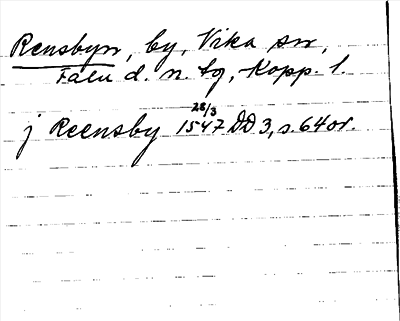 Rensbyn, by, Vika sn,
Falu d. n. tg, Kopp. l.
j Reensby 1547 28/3 DD 3, s. 64 or.